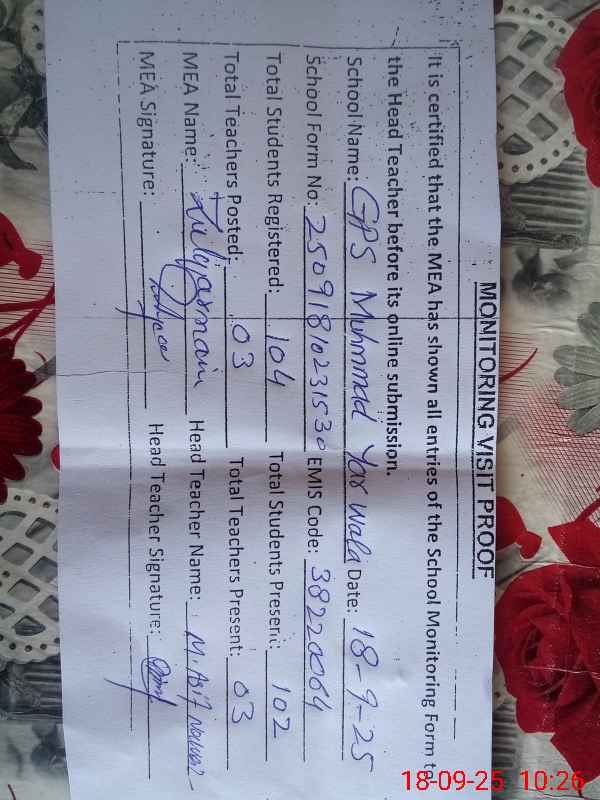 MONITORING VISIT PROOF
It is certified that the MEA has shown all entries of the School Monitoring Form to
the Head Teacher before its online submission.
School Name: GPS Muhmmad Yar wala Date: 18-9-25
School Form No: 25091810231530 EMIS Code: 38220064
Total Students Registered: 104 Total Students Present: 102
Total Teachers Posted: 03 Total Teachers Present: 03
MEA Name: Head Teacher Name: M. Asif
MEA Signature: Head Teacher Signature:
18-09-25 10:26